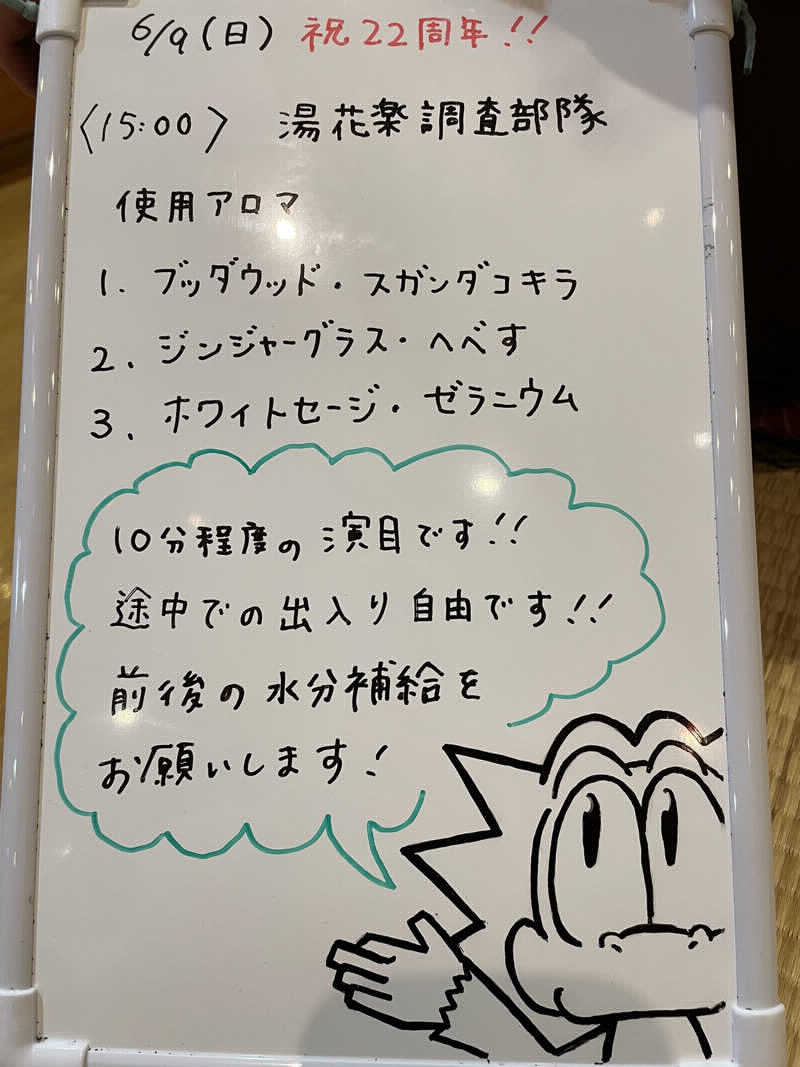 6/9(日) 祝22周年!!
〈15:00〉 湯花楽調査部隊
使用アロマ
1. ブッダウッド・スガンダコキラ
2. ジンジャーグラス・へべす
3. ホワイトセージ・ゼラニウム
10分程度の演目です!!
途中での出入り自由です!!
前後の水分補給を
お願いします!